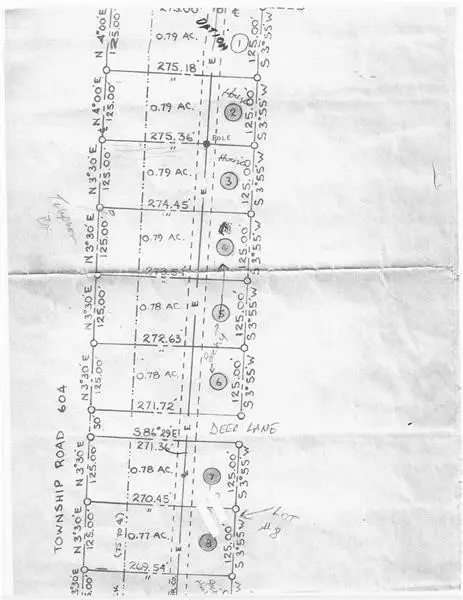 275.00'
N 4°00'E
125.00'
0.79 AC.
OPTION
1
125.00'
S 3°55'W
275.18'
"
E
N 4°00'E
125.00'
0.79 AC.
House
2
125.00'
S 3°55'W
275.36'
"
POLE
N 3°30'E
125.00'
0.79 AC.
House
3
125.00'
S 3°55'W
E
274.45'
"
N 3°30'E
125.00'
0.79 AC.
4
125.00'
S 3°55'W
E
273.54'
N 3°30'E
125.00'
0.78 AC.
5
125.00'
S 3°55'W
E
272.63'
"
N 3°30'E
125.00'
0.78 AC.
6
125.00'
S 3°55'W
E
271.72'
30'
DEER LANE
S 86°29'E
271.36'
TOWNSHIP ROAD 604
N 3°30'E
125.00'
0.78 AC.
7
125.00'
S 3°55'W
270.45'
LOT
#8
N 3°30'E
125.00'
(75 TO ¢)
0.77 AC.
E
8
125.00'
S 3°55'W
269.54'
3°30'E